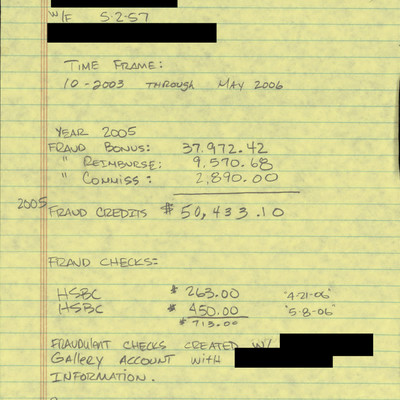 W/F 5·2·57
TIME FRAME:
10-2003 THROUGH MAY 2006
YEAR 2005
FRAUD BONUS: 37.972.42
" REIMBURSE: 9,570.68
" COMMISS: 2,890.00
2005 FRAUD CREDITS $50,433.10
FRAUD CHECKS:
HSBC $ 263.00 "4-21-06"
HSBC $ 450.00 "5-8-06"
$ 713.00
FRAUDULENT CHECKS CREATED W/
GALLERY ACCOUNT WITH
INFORMATION.